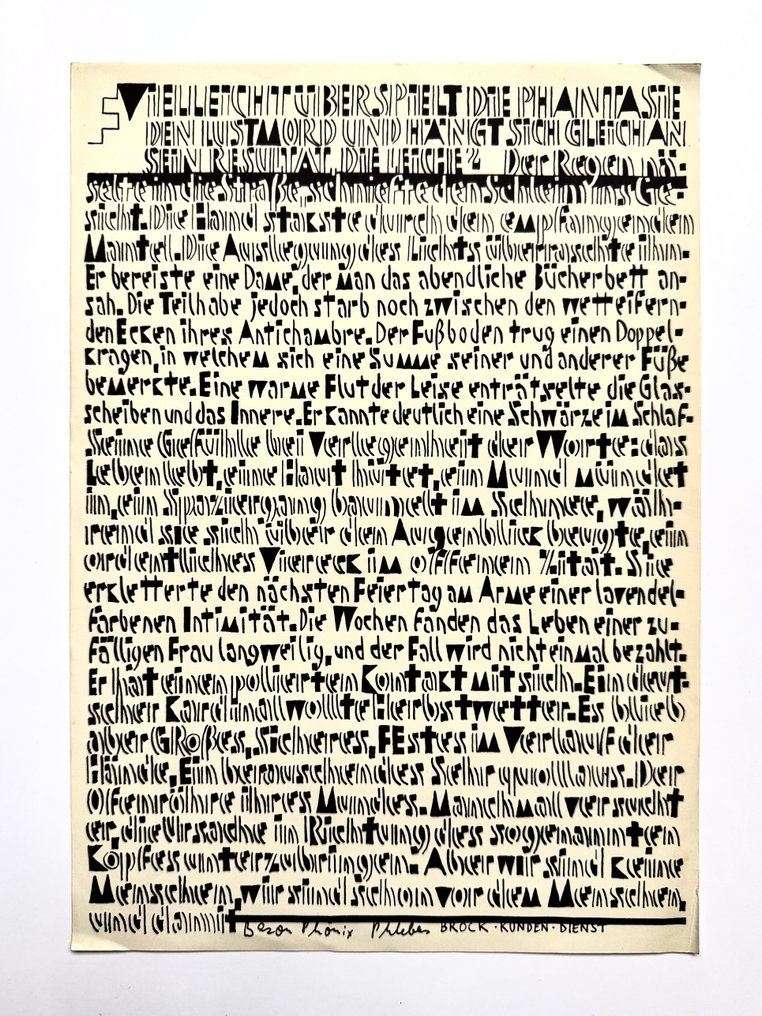 VIELLEICHT ÜBERSPIELT DIE PHANTASIE
DEN LUSTMORD UND HÄNGT SICH GLEICH AN
SEIN RESULTAT, DIE LEICHE? Der Regen nä-
selte in die Straße, schniefte den Schleim ins Ge-
sicht. Die Hand stakste durch den empfangenden
Mantel. Die Auslegung des Lichts überraschte ihn.
Er bereiste eine Dame, der man das abendliche Bücherbett an-
sah. Die Teilhabe jedoch starb noch zwischen den wetteifern-
den Ecken ihres Antichambre. Der Fußboden trug einen Doppel-
kragen, in welchem sich eine Summe seiner und anderer Füße
bemerkte. Eine warme Flut der Leise enträtselte die Glas-
scheiben und das Innere. Er kannte deutlich eine Schwärze im Schlaf.
Seine Gefühle bei Verlegenheit der Worte: das
Leben lebt, eine Haut hütet, ein Mund mündet
in, ein Spaziergang baumelt im Schuhee, wäh-
rend sie sich über den Augenblick beugte, ein
ordentliches Viereck im offenen Zität. Sie
erkletterte den nächsten Feiertag am Arme einer lavendel-
farbenen Intimität. Die Wochen fanden das Leben einer zu-
fälligen Frau langweilig, und der Fall wird nicht einmal bezahlt.
Er hat einen polierten Kontakt mit sich. Ein deut-
scher Kardinal wollte Herbstwetter. Es blieb
aber Großes, Sicheres, FEstes im Verlauf der
Hände, Ein berauschendes Sehr quoll aus. Der
Ofenröhre ihres Mundes. Manchmal versucht
er, die Ursache in Richtung des sogenannten
Kopfes unterzubringen. Aber wir sind keine
Menschen, wir sind schon vor dem Menschen,
und damit
Bazon Phönix Phlebas BROCK · KUNDEN · DIENST